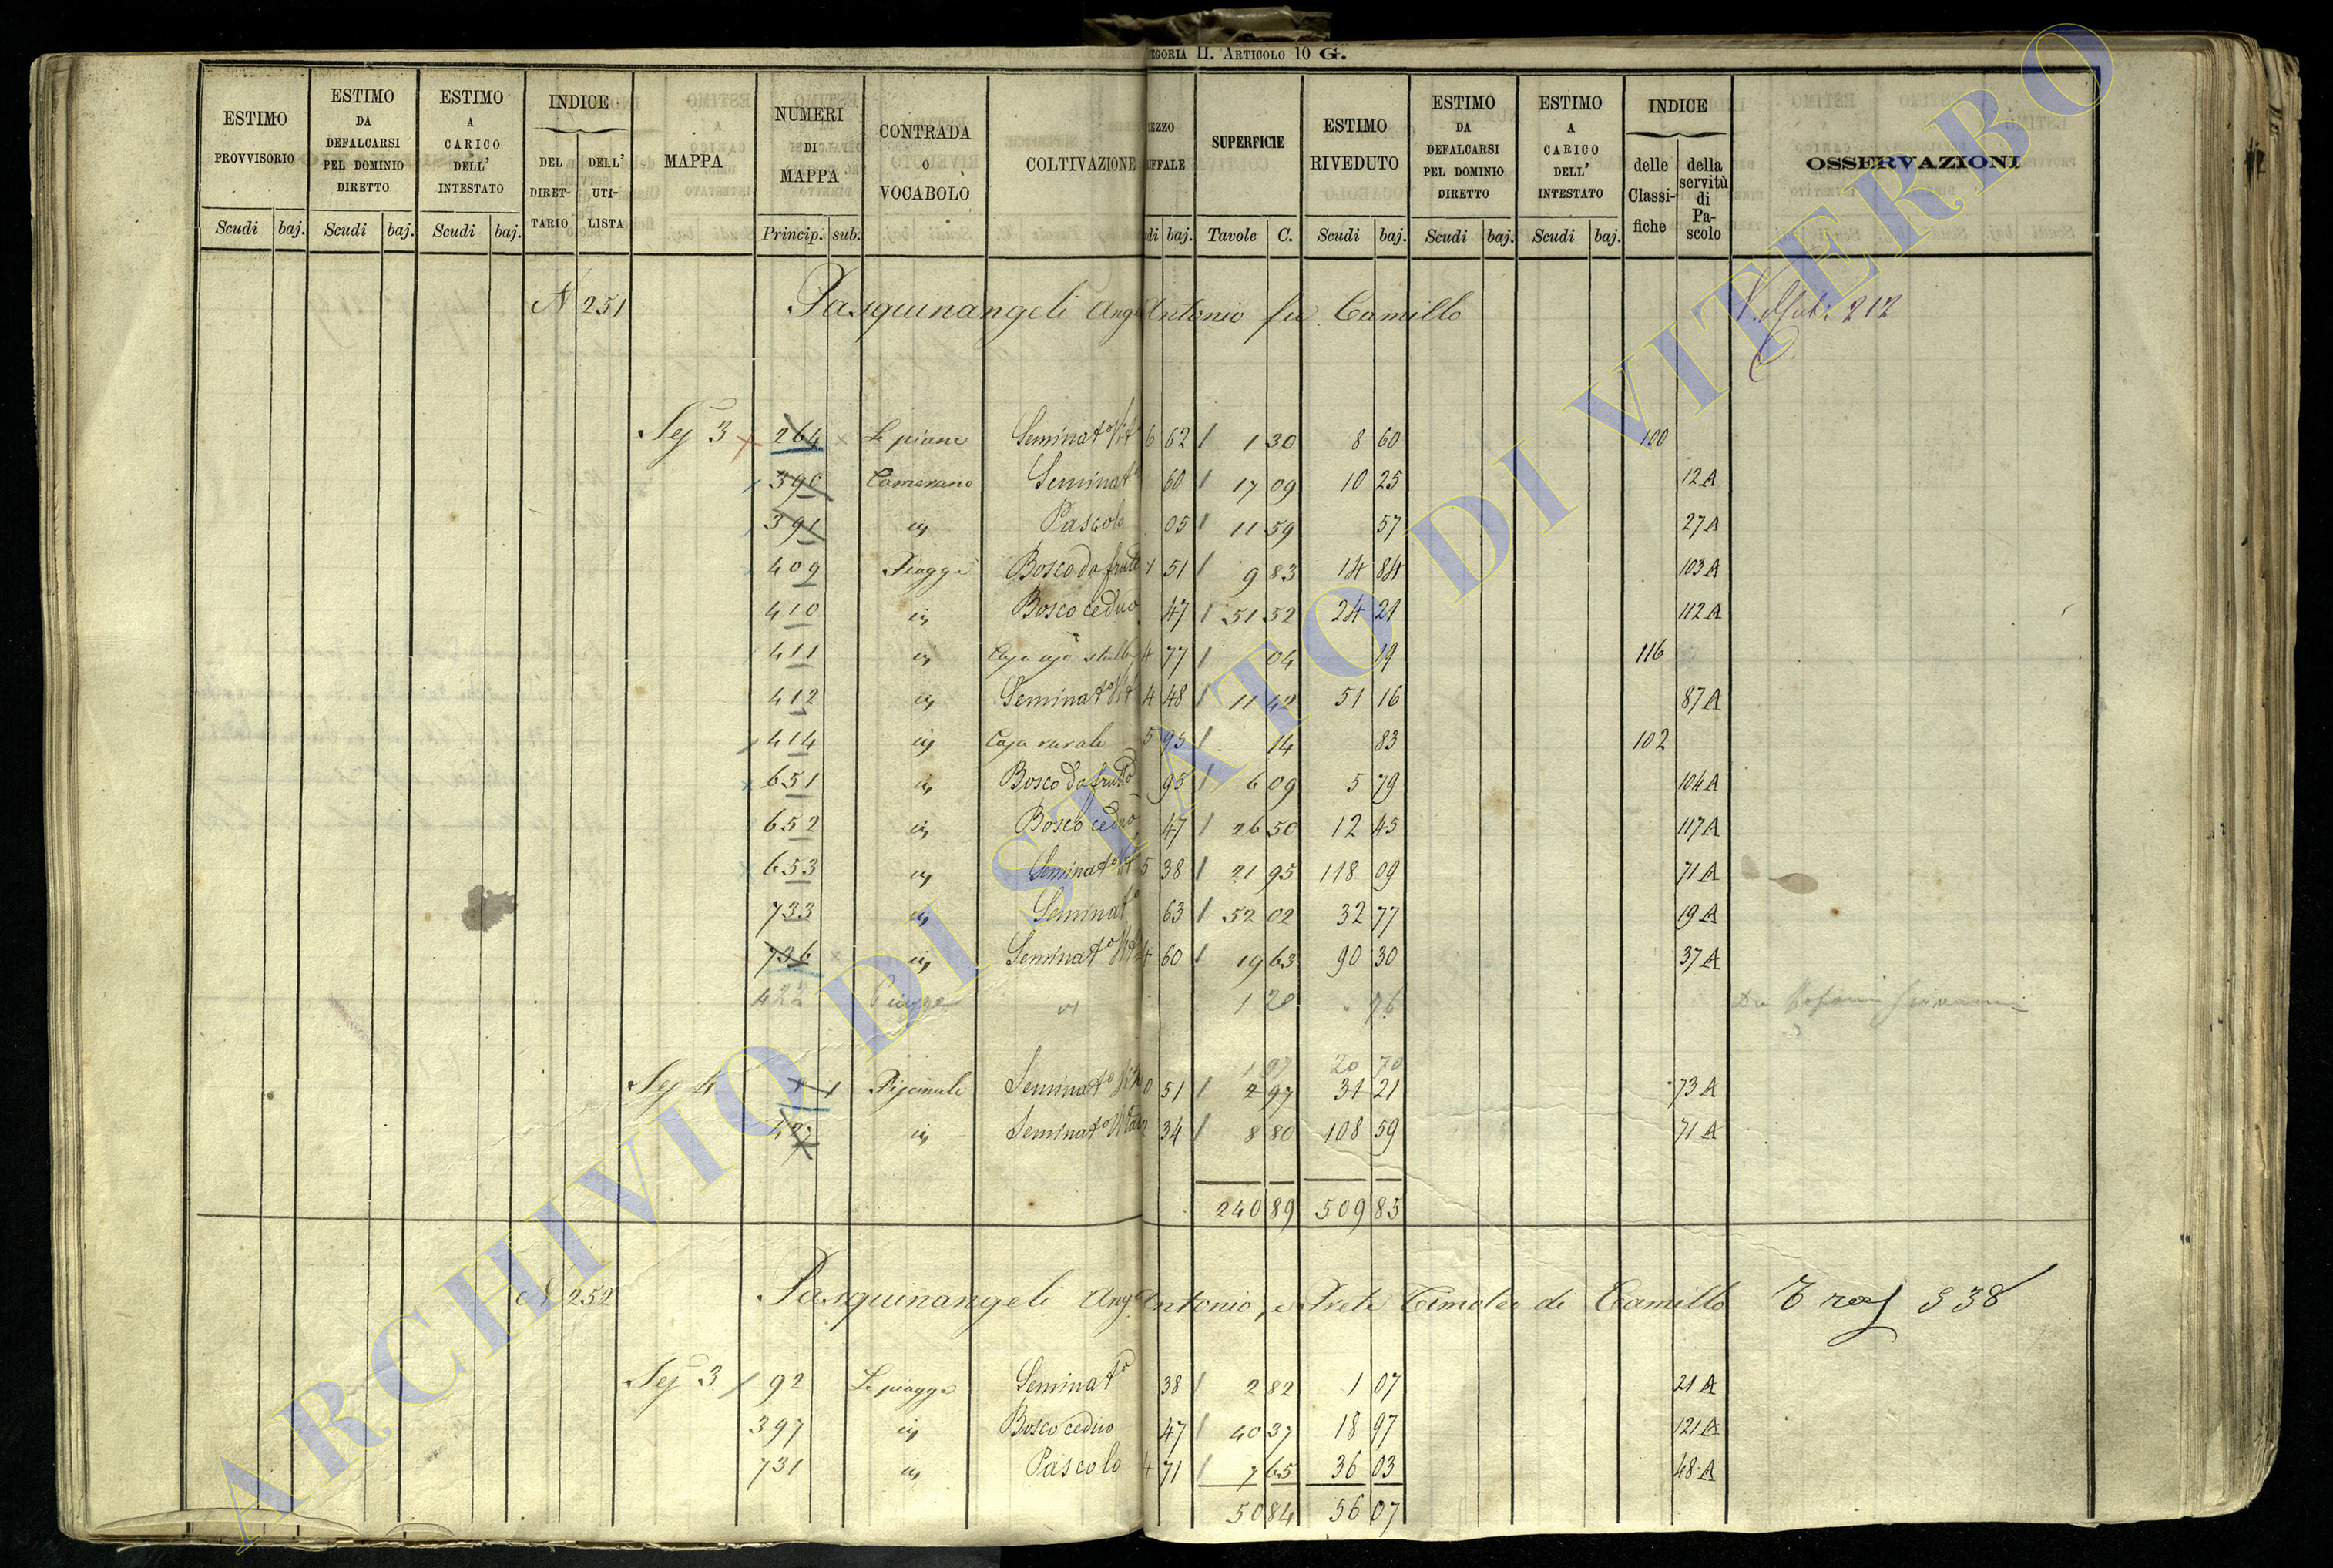 EGORIA II. ARTICOLO 10 G.
ESTIMO PROVVISORIO Scudi baj.
ESTIMO DA DEFALCARSI PEL DOMINIO DIRETTO Scudi baj.
ESTIMO A CARICO DELL' INTESTATO Scudi baj.
INDICE DEL DIRET-TARIO DELL' UTI-LISTA
MAPPA
NUMERI DI MAPPA Princip. sub.
CONTRADA O VOCABOLO
COLTIVAZIONE
EZZO IFFALE di baj.
SUPERFICIE Tavole C.
ESTIMO RIVEDUTO Scudi baj.
ESTIMO DA DEFALCARSI PEL DOMINIO DIRETTO Scudi baj.
ESTIMO A CARICO DELL' INTESTATO Scudi baj.
INDICE delle Classi-fiche della servitù di Pa-scolo
OSSERVAZIONI
N 251 Pasquinangeli Ang Antonio fu Camillo 212
Sez 3 264 Le piane Seminato Vito 6 62 1 30 8 60 100
390 Camerano Seminato 60 17 09 10 25 12A
391 id Pascolo 05 11 59 57 27A
409 Piagge Bosco da frutto 1 51 9 83 14 84 103A
410 id Bosco ceduo 47 51 52 24 21 112A
411 id Casa uso stalla 4 77 04 19 116
412 id Seminato Vito 4 48 11 42 51 16 87A
414 id Casa rurale 5 95 14 83 102
651 id Bosco da frutto 95 6 09 5 79 104A
652 id Bosco ceduo 47 26 50 12 45 117A
653 id Seminato Vito 5 38 21 95 118 09 71A
733 id Seminato 63 52 02 32 77 19A
736 id Seminato Vito 4 60 19 63 90 30 37A
422 Piagge 1 28 76 Da Giovanni
1 97 20 70
Sez 4 Piscinale Seminato 0 51 2 97 31 21 73A
id Seminato 2 34 8 80 108 59 71A
240 89 509 85
N 252 Pasquinangeli Ang Antonio, e Prete Timoteo di Camillo 338
Sez 3 92 Le piagge Seminato 38 2 82 1 07 21A
397 id Bosco ceduo 47 40 37 18 97 121A
731 id Pascolo 4 71 7 65 36 03 48A
50 84 56 07
ARCHIVIO DI STATO DI VITERBO